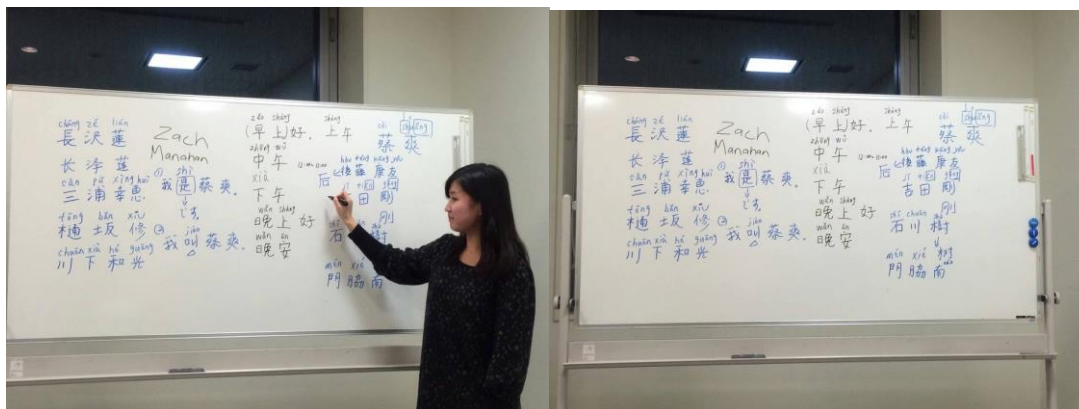 chāng zé lián
長沢蓮
长泽莲
sān pǔ xìng huì
三浦幸恵
tōng bǎn xiū
樋坂修
chuān xià hé guāng
川下和光
Zach
Manahan
① shì
我是蔡爽.
↓
です
② jiào
我叫蔡爽.
zǎo shàng shàng
(早上)好. 上午
zhōng wǔ
中午
xià
下午
wǎn shàng
晚上好
wǎn ān
晚安
cài shuǎng
蔡
hòu téng kāng yǒu
后←後藤康友
jí tián
田剛
shí
石 樹
mén xié
門脇南
chāng zé lián
長沢蓮
长泽莲
sān pǔ xìng huì
三浦幸恵
tōng bǎn xiū
樋坂修
chuān xià hé guāng
川下和光
Zach
Manahan
① shì
我是蔡爽.
↓
です
② jiào
我叫蔡爽.
zǎo shàng shàng
(早上)好. 上午
zhōng wǔ
中午
xià
下午
wǎn shàng
晚上好
wǎn ān
晚安
cài shuǎng
蔡爽
hòu téng kāng yǒu
后←後藤康友
jí tián
吉田剛
刚
shí chuān shù
石川樹
↓
mén xié 树
nán
門脇南